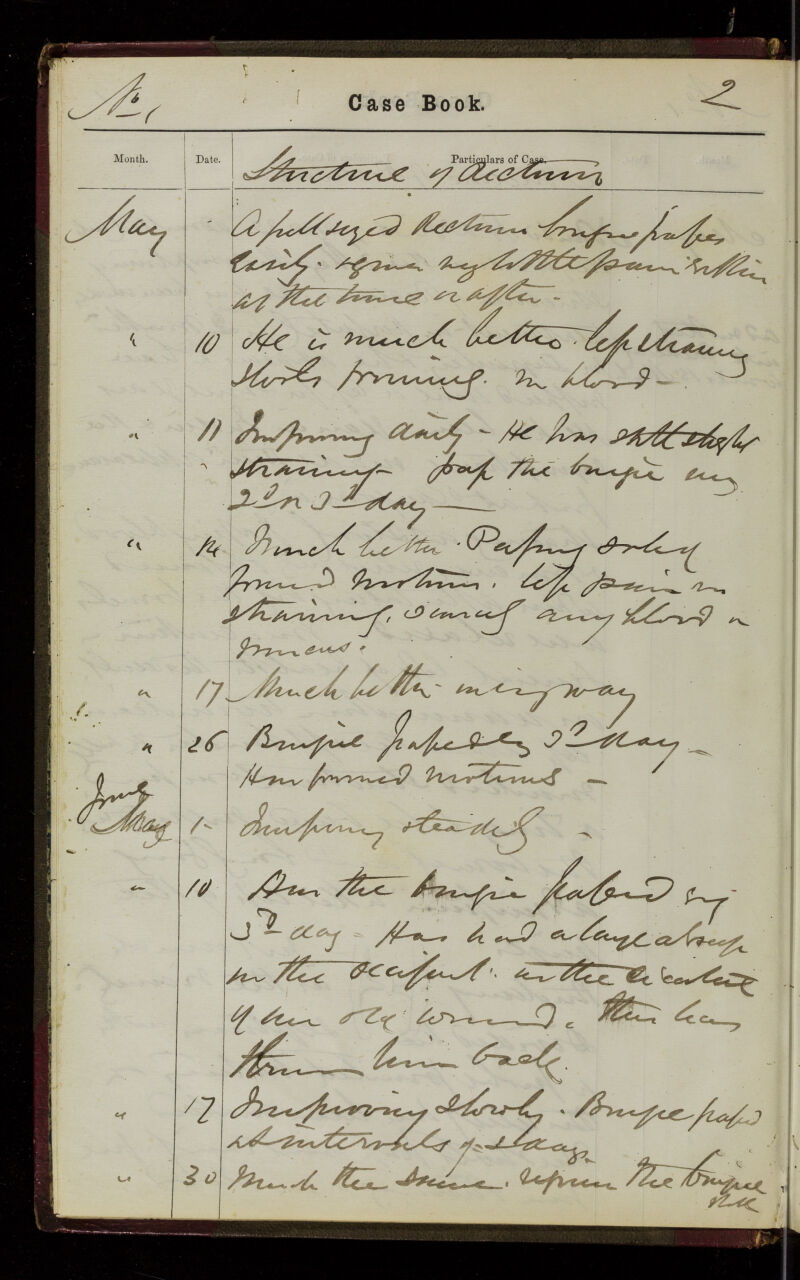 No 1
Case Book.
2
Month. Date. Particulars of Case.
Stricture of Rectum
May A full sized Rectum bougie passes
easily. very little pain either
at the time or after -
" 10 He is much better. less straining
stools forming. no blood -
" 11 Improving daily - He has still slight
straining - pass the bougie every
2d or 3d day -
" 14 Much better. Passing solid
formed motions. less pain or
straining, scarcely any blood or
mucus.
" 17 Much better in every way
" 26 Bougie passed every 3d day -
Has formed motions -
June
May 1 - Improving steadily -
" 10 Has the bougie passed every
3d day - Has had a large abscess
in the occiput. in the cicatrix
of an old wound. this has
thrown him back.
" 17 Improving slowly. Bougie passed
at intervals of 3 days.
" 30 Much the same. the bougie
still